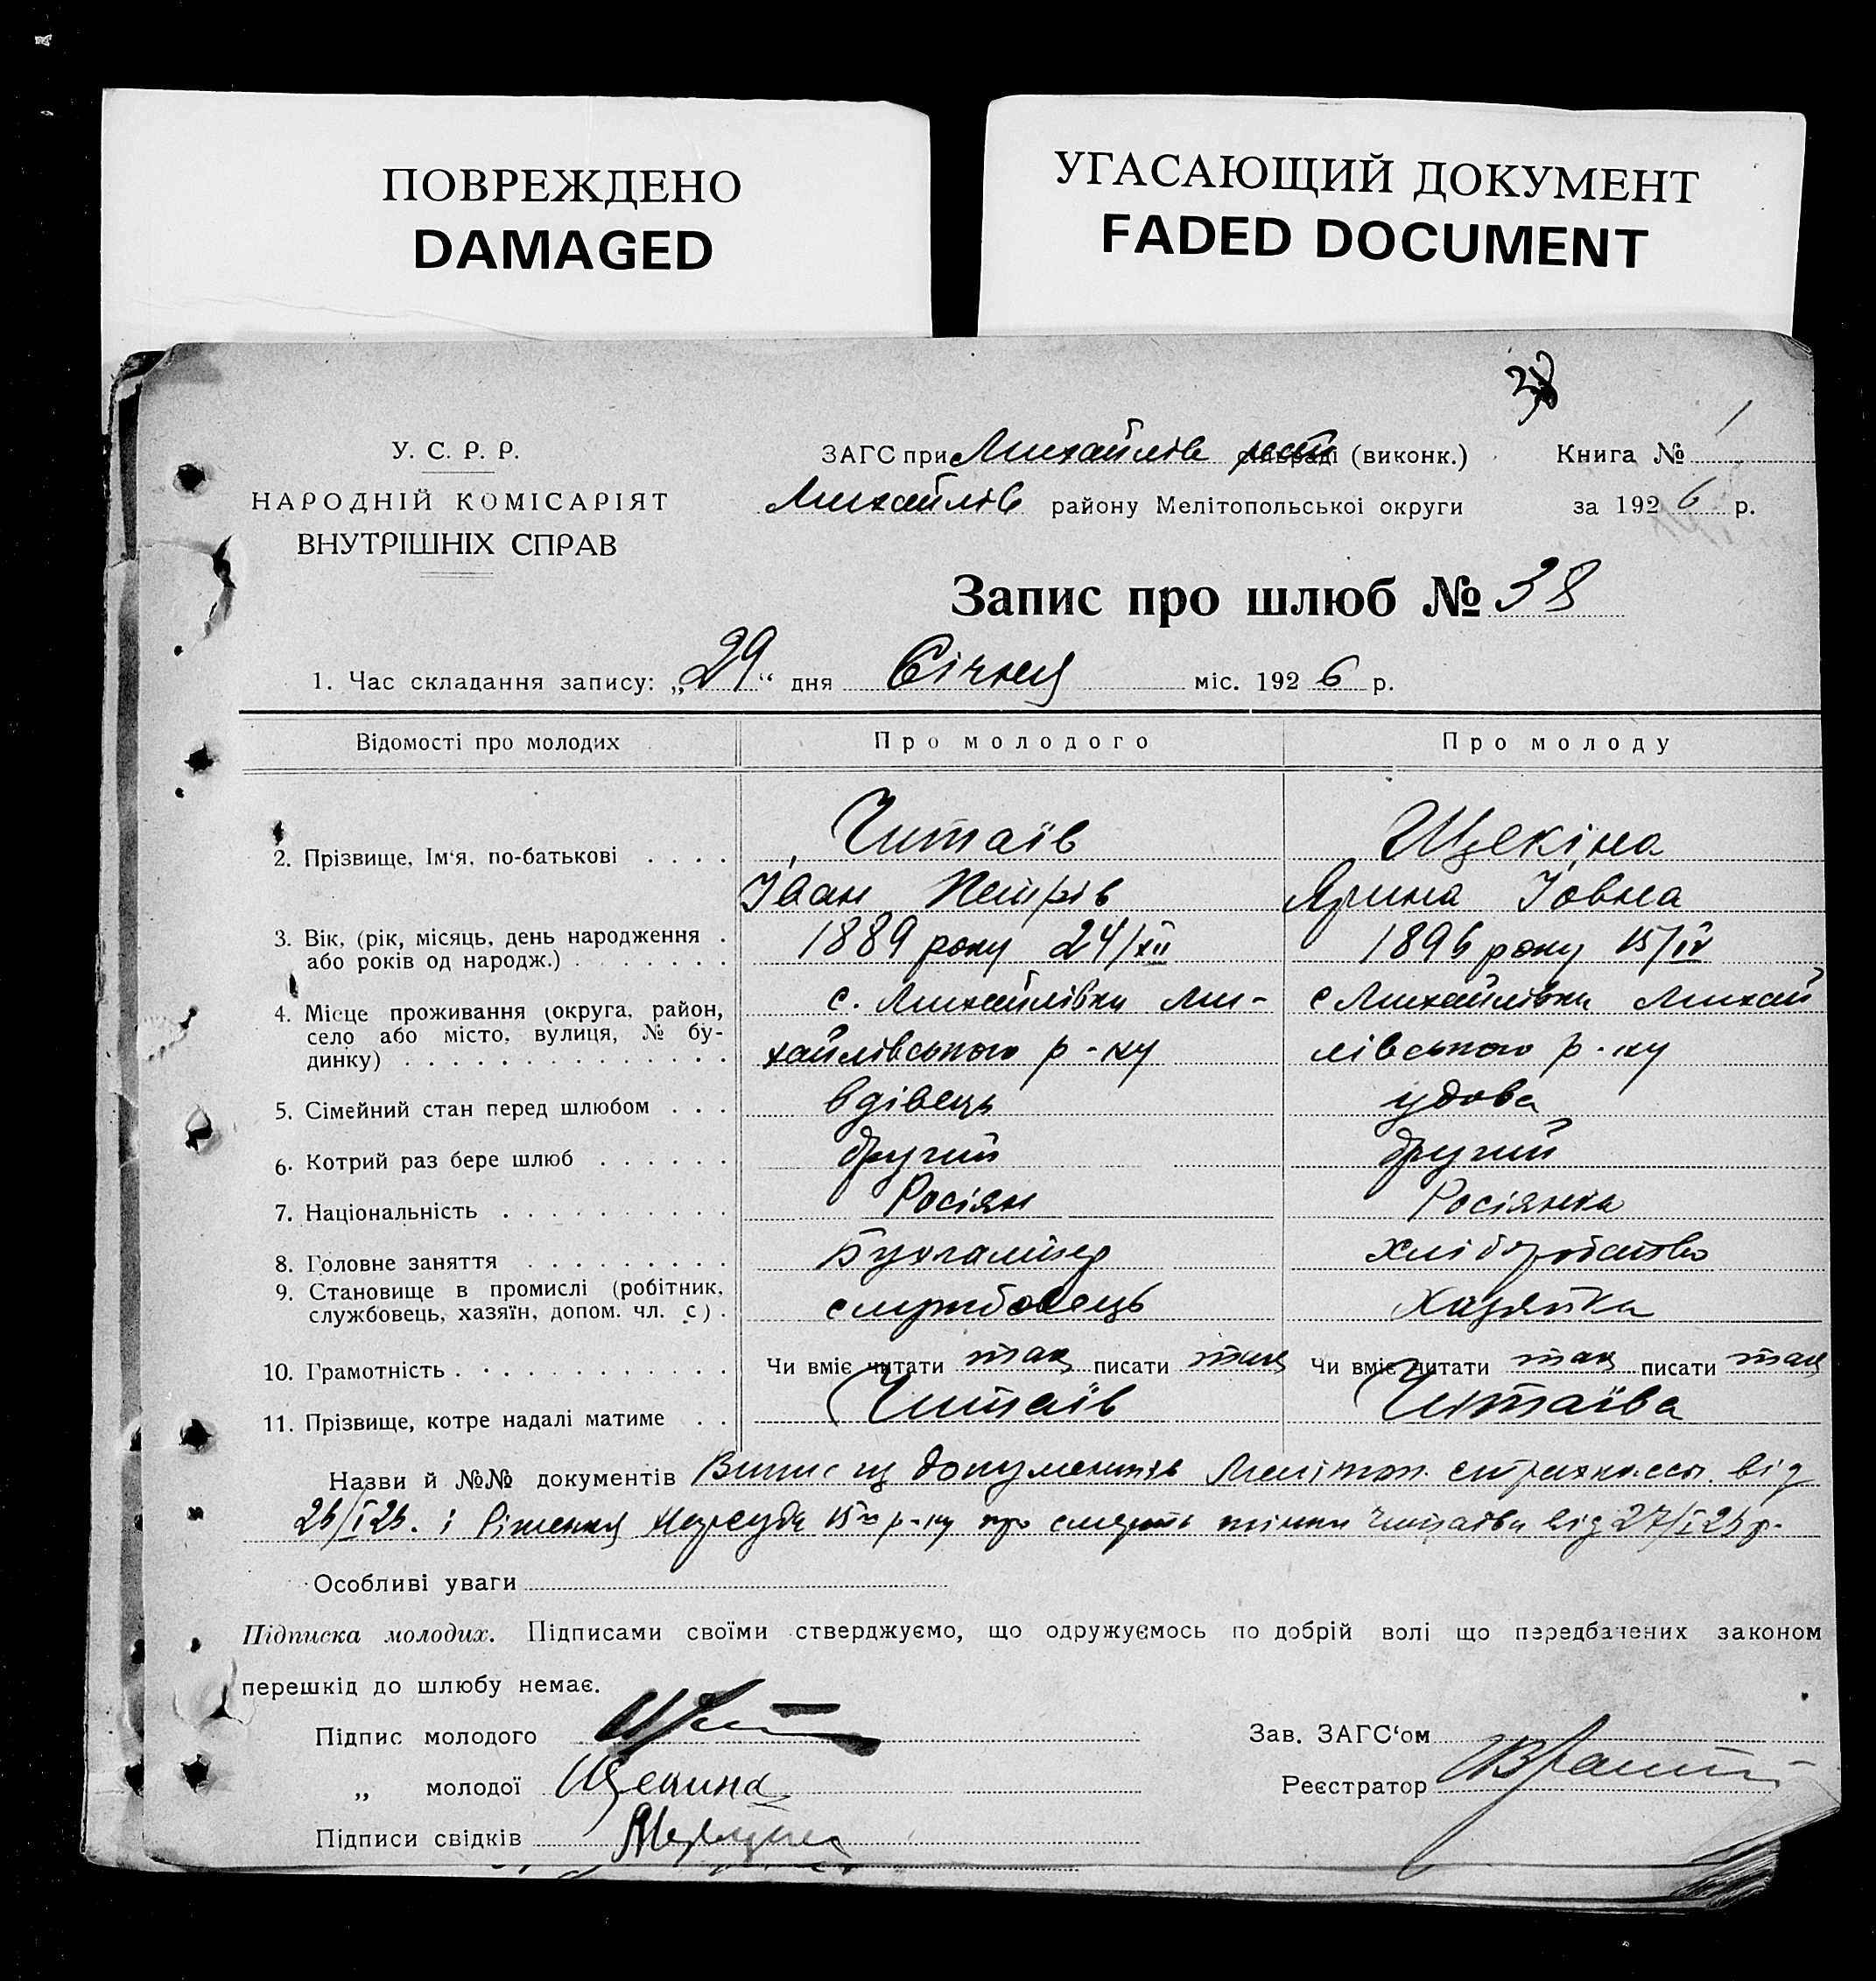 ПОВРЕЖДЕНО
DAMAGED
УГАСАЮЩИЙ ДОКУМЕНТ
FADED DOCUMENT
38
У. С. Р. Р.
НАРОДНІЙ КОМІСАРІЯТ
ВНУТРІШНІХ СПРАВ
ЗАГС при Михайлів сільраді (виконк.)
Михайлів району Мелітопольської округи
Книга № 1
за 1926 р.
Запис про шлюб № 38
1. Час складання запису: „29“ дня Січня міс. 1926 р.
Відомості про молодих Про молодого Про молоду
2. Прізвище, Ім'я, по-батькові . . . . Читаїв Щекіна
Іван Петрів Ярина Іовна
3. Вік, (рік, місяць, день народження . 1889 року 24/XII 1896 року 15/IV
або років од народж.) . . . . . . .
4. Місце проживання (округа, район, с. Михайлівки Ми- с Михайлівки Михай
село або місто, вулиця, № бу-
динку) . . . . . . . . . . . . . . хайлівського р-ну лівського р-ну
5. Сімейний стан перед шлюбом . . . вдівець удова
6. Котрий раз бере шлюб . . . . . . другий другий
7. Національність . . . . . . . . . . Росіян Росіянка
8. Головне заняття . . . . . . . . . Бухгалтер хліборобство
9. Становище в промислі (робітник,
службовець, хазяїн, допом. чл. с) . службовець Хазяйка
10. Грамотність . . . . . . . . . . . . Чи вміє читати так писати так Чи вміє читати так писати так
11. Прізвище, котре надалі матиме . . Читаїв Читаїва
Назви й №№ документів Витис із документів Меліт. страхкасси від
26/I 26. і Рішення Нарсуда 15го р-ну про смерть жінки Читаїва від 27/I 26 р.
Особливі уваги
Підписка молодих. Підписами своїми стверджуємо, що одружуємось по добрій волі що передбачених законом
перешкід до шлюбу немає.
Підпис молодого
Зав. ЗАГС'ом
„ молодої Щекина
Реєстратор
Підписи свідків